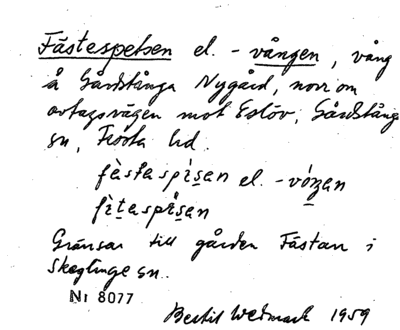 Fästespetsen el. -vången, vång
å Gårdstånga Nygård, norr om
avtagsvägen mot Eslöv, Gårdstånga
sn, Frosta hd.
fèstaspìsan el. -vóŋan
fìtaspìsan
Gränsar till gården Fästan i
Skeglinge sn.
Nr 8077
Bertil Wedmark 1959